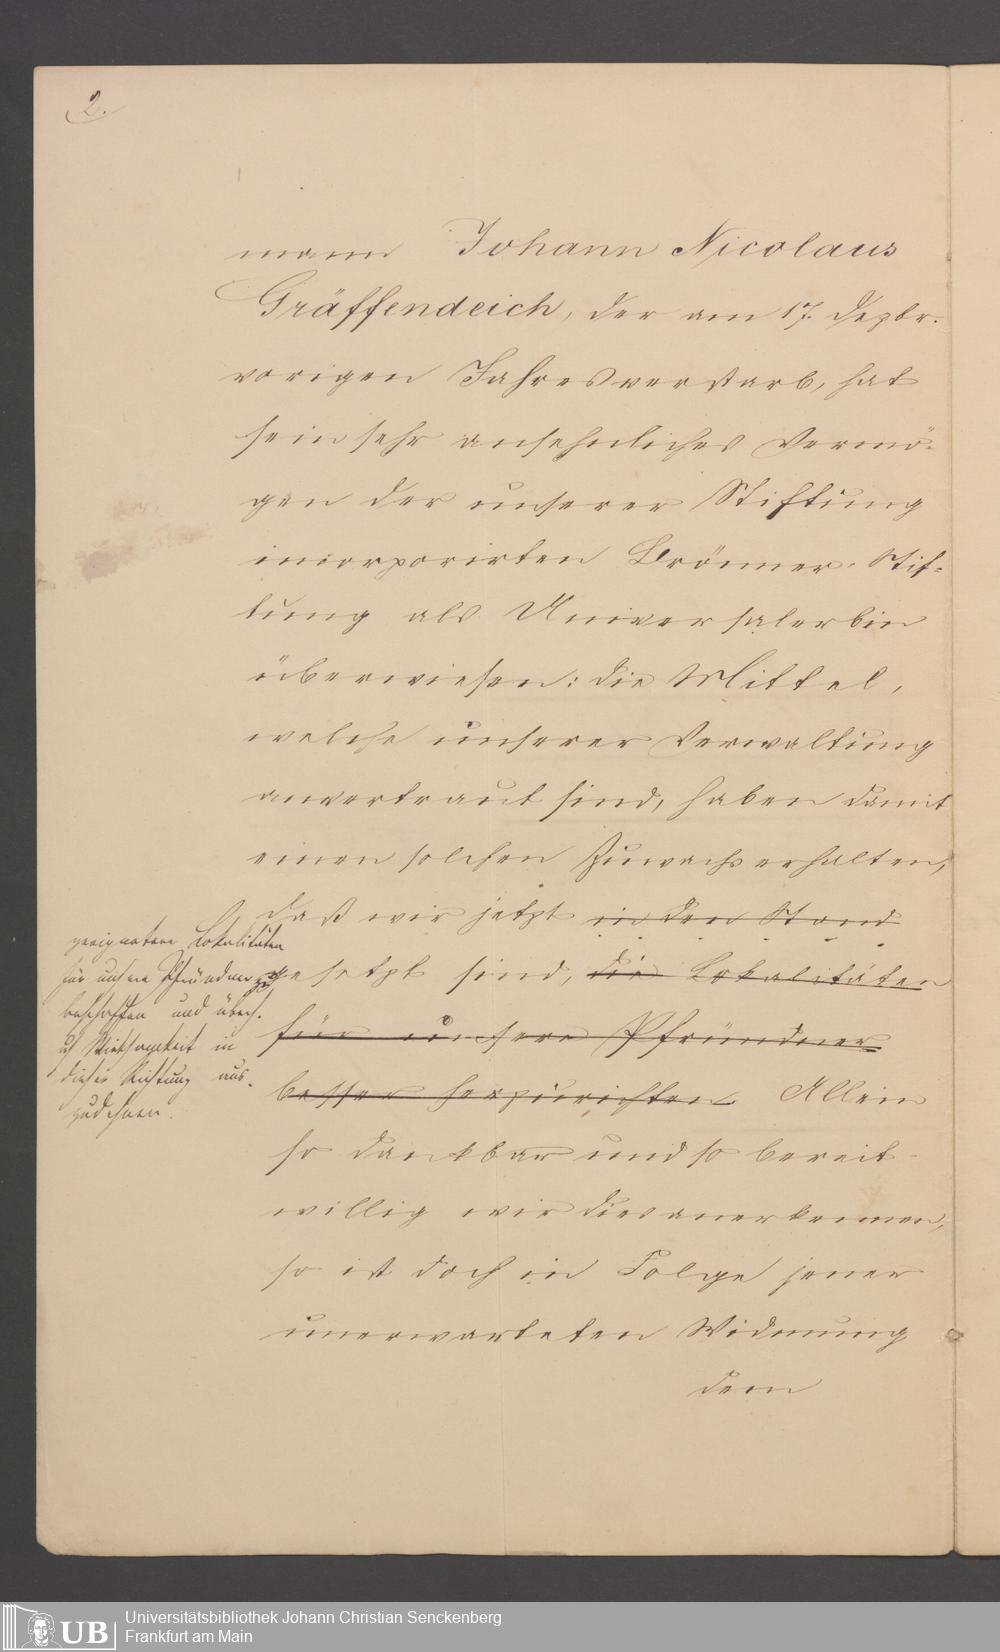 2.
mann Johann Nicolaus
Gräffendeich, der am 17. Dezbr.
vorigen Jahres verstarb, hat
sein sehr ansehnliches Vermö-
gen der unserer Stiftung
incorporirten Brönner-Stif-
tung als Universalerbin
überwiesen: die Mittel,
welche unserer Verwaltung
anvertraut sind, haben damit
einen solchen Zuwachs erhalten,
daß wir jetzt in den Stand
gesetzt sind, die Lokalitäten
für unsere Pfründner
besser herzurichten. Allein
so dankbar und so bereit-
willig wir dies anerkennen,
so ist doch in Folge jener
unerwarteten Widmung
dem
geeignetere Lokalitäten
für unsere Pfründner zu
beschaffen und
Wirksamkeit in
dieser Richtung aus-
zudehnen.
UB
Universitätsbibliothek Johann Christian Senckenberg
Frankfurt am Main